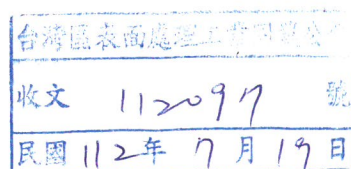 台灣區表面處理工業同業公
收文 112097 號
民國 112 年 7 月 19 日